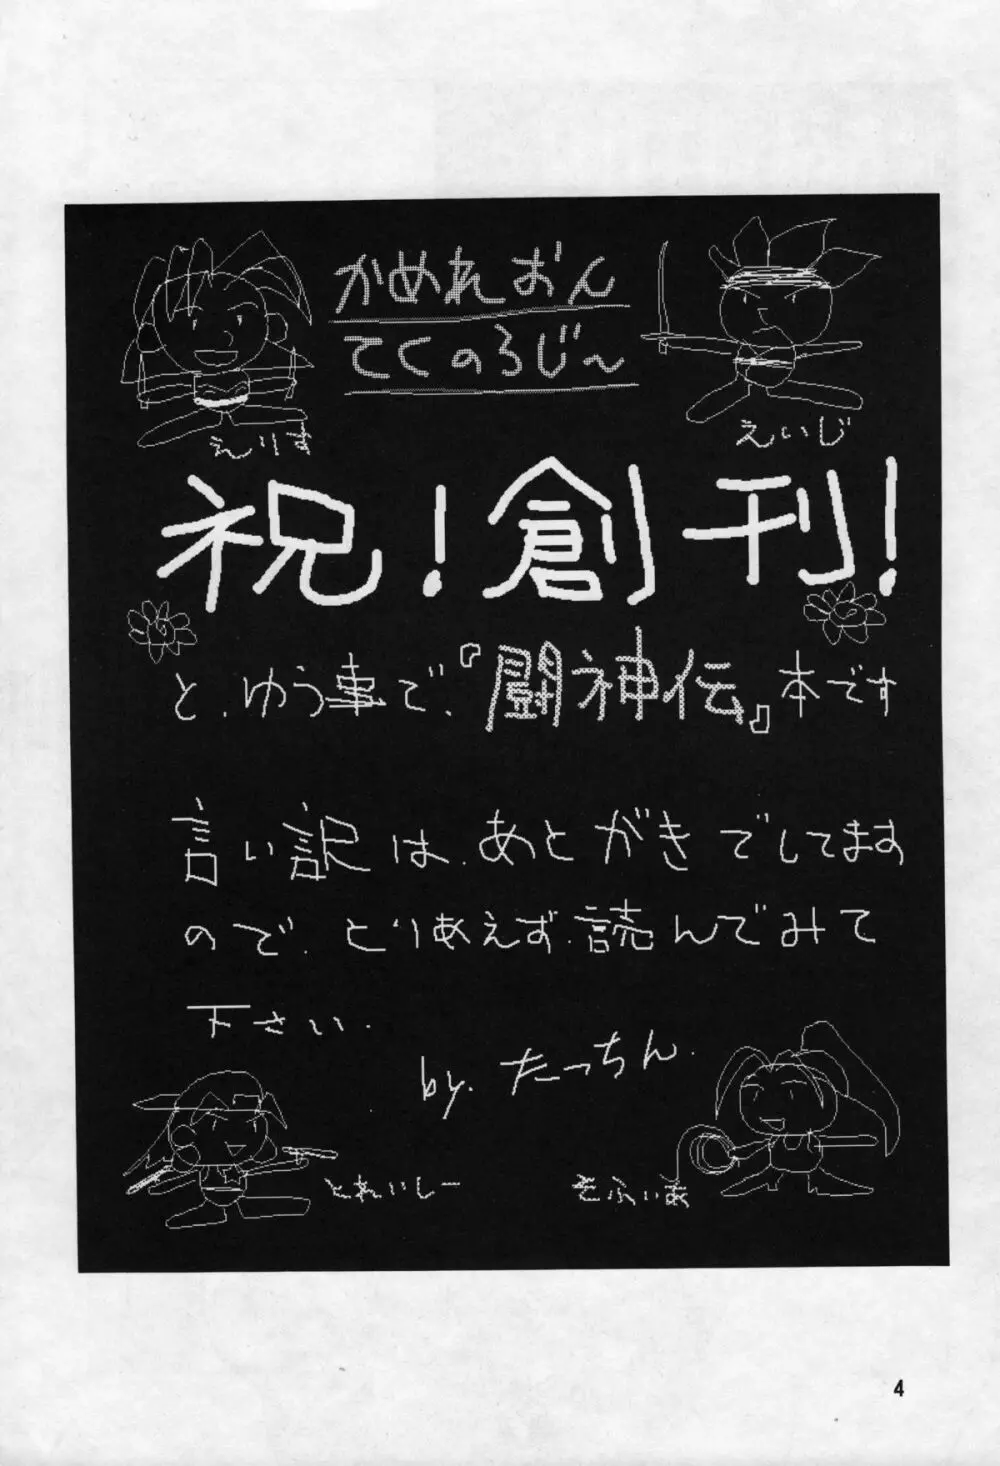 かめれおん
てくのろじ〜
えりす
えいじ
祝!創刊!
と.ゆう事で.『闘神伝』本です
言い訳は.あとがきでしてます
ので.とりあえず.読んでみて
下さい.
by.たっちん.
とれいしー
そふぃあ
4